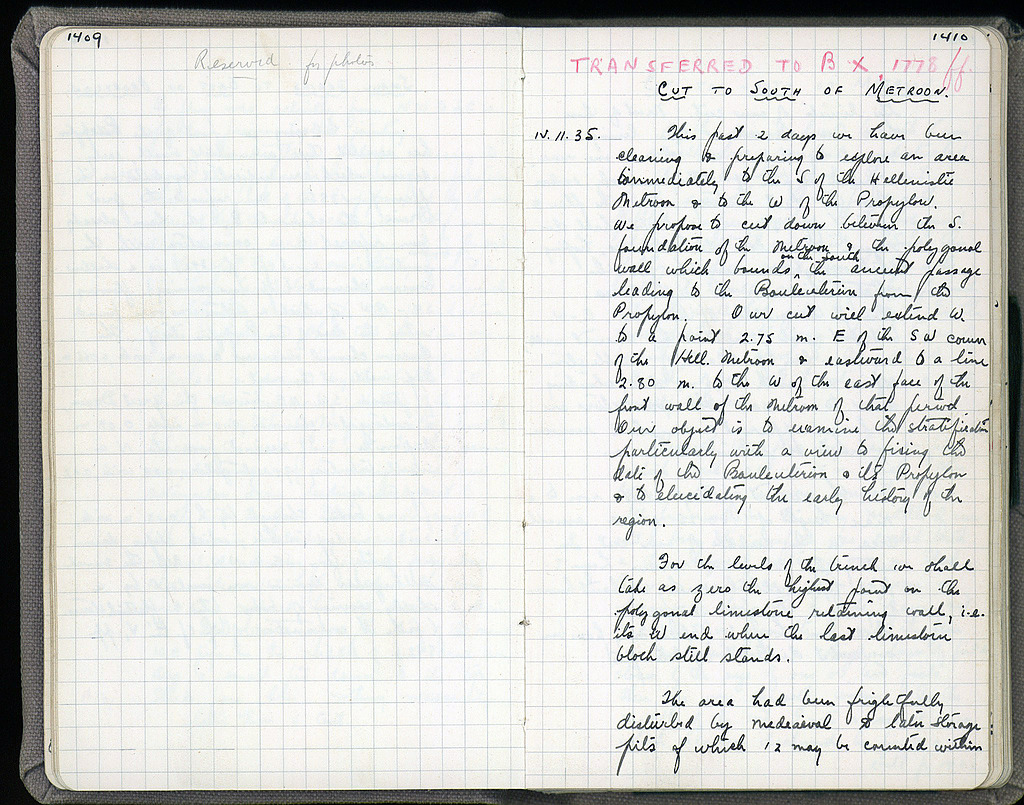 1409
Reserved for photos
1410
TRANSFERRED TO B X, 1778 ff.
CUT TO SOUTH OF METROON.
IV. 11. 35. This past 2 days we have been
cleaning & preparing to explore an area
immediately to the S of the Hellenistic
Metroon & to the W of the Propylon.
We propose to cut down between the S.
foundation of the Metroon & the polygonal
wall which bounds on the south the ancient passage
leading to the Bouleuterion from the
Propylon. Our cut will extend W.
to a point 2.75 m. E of the SW corner
of the Hell. Metroon & eastward to a line
2.80 m. to the W of the east face of the
front wall of the Metroon of that period.
Our object is to examine the stratification
particularly with a view to fixing the
date of the Bouleuterion & its Propylon
& to elucidating the early history of the
region.
For the levels of the trench we shall
take as zero the highest point on the
polygonal limestone retaining wall, i.e.
its W end where the last limestone
block still stands.
The area had been frightfully
disturbed by mediaeval & later storage
pits of which 12 may be counted within